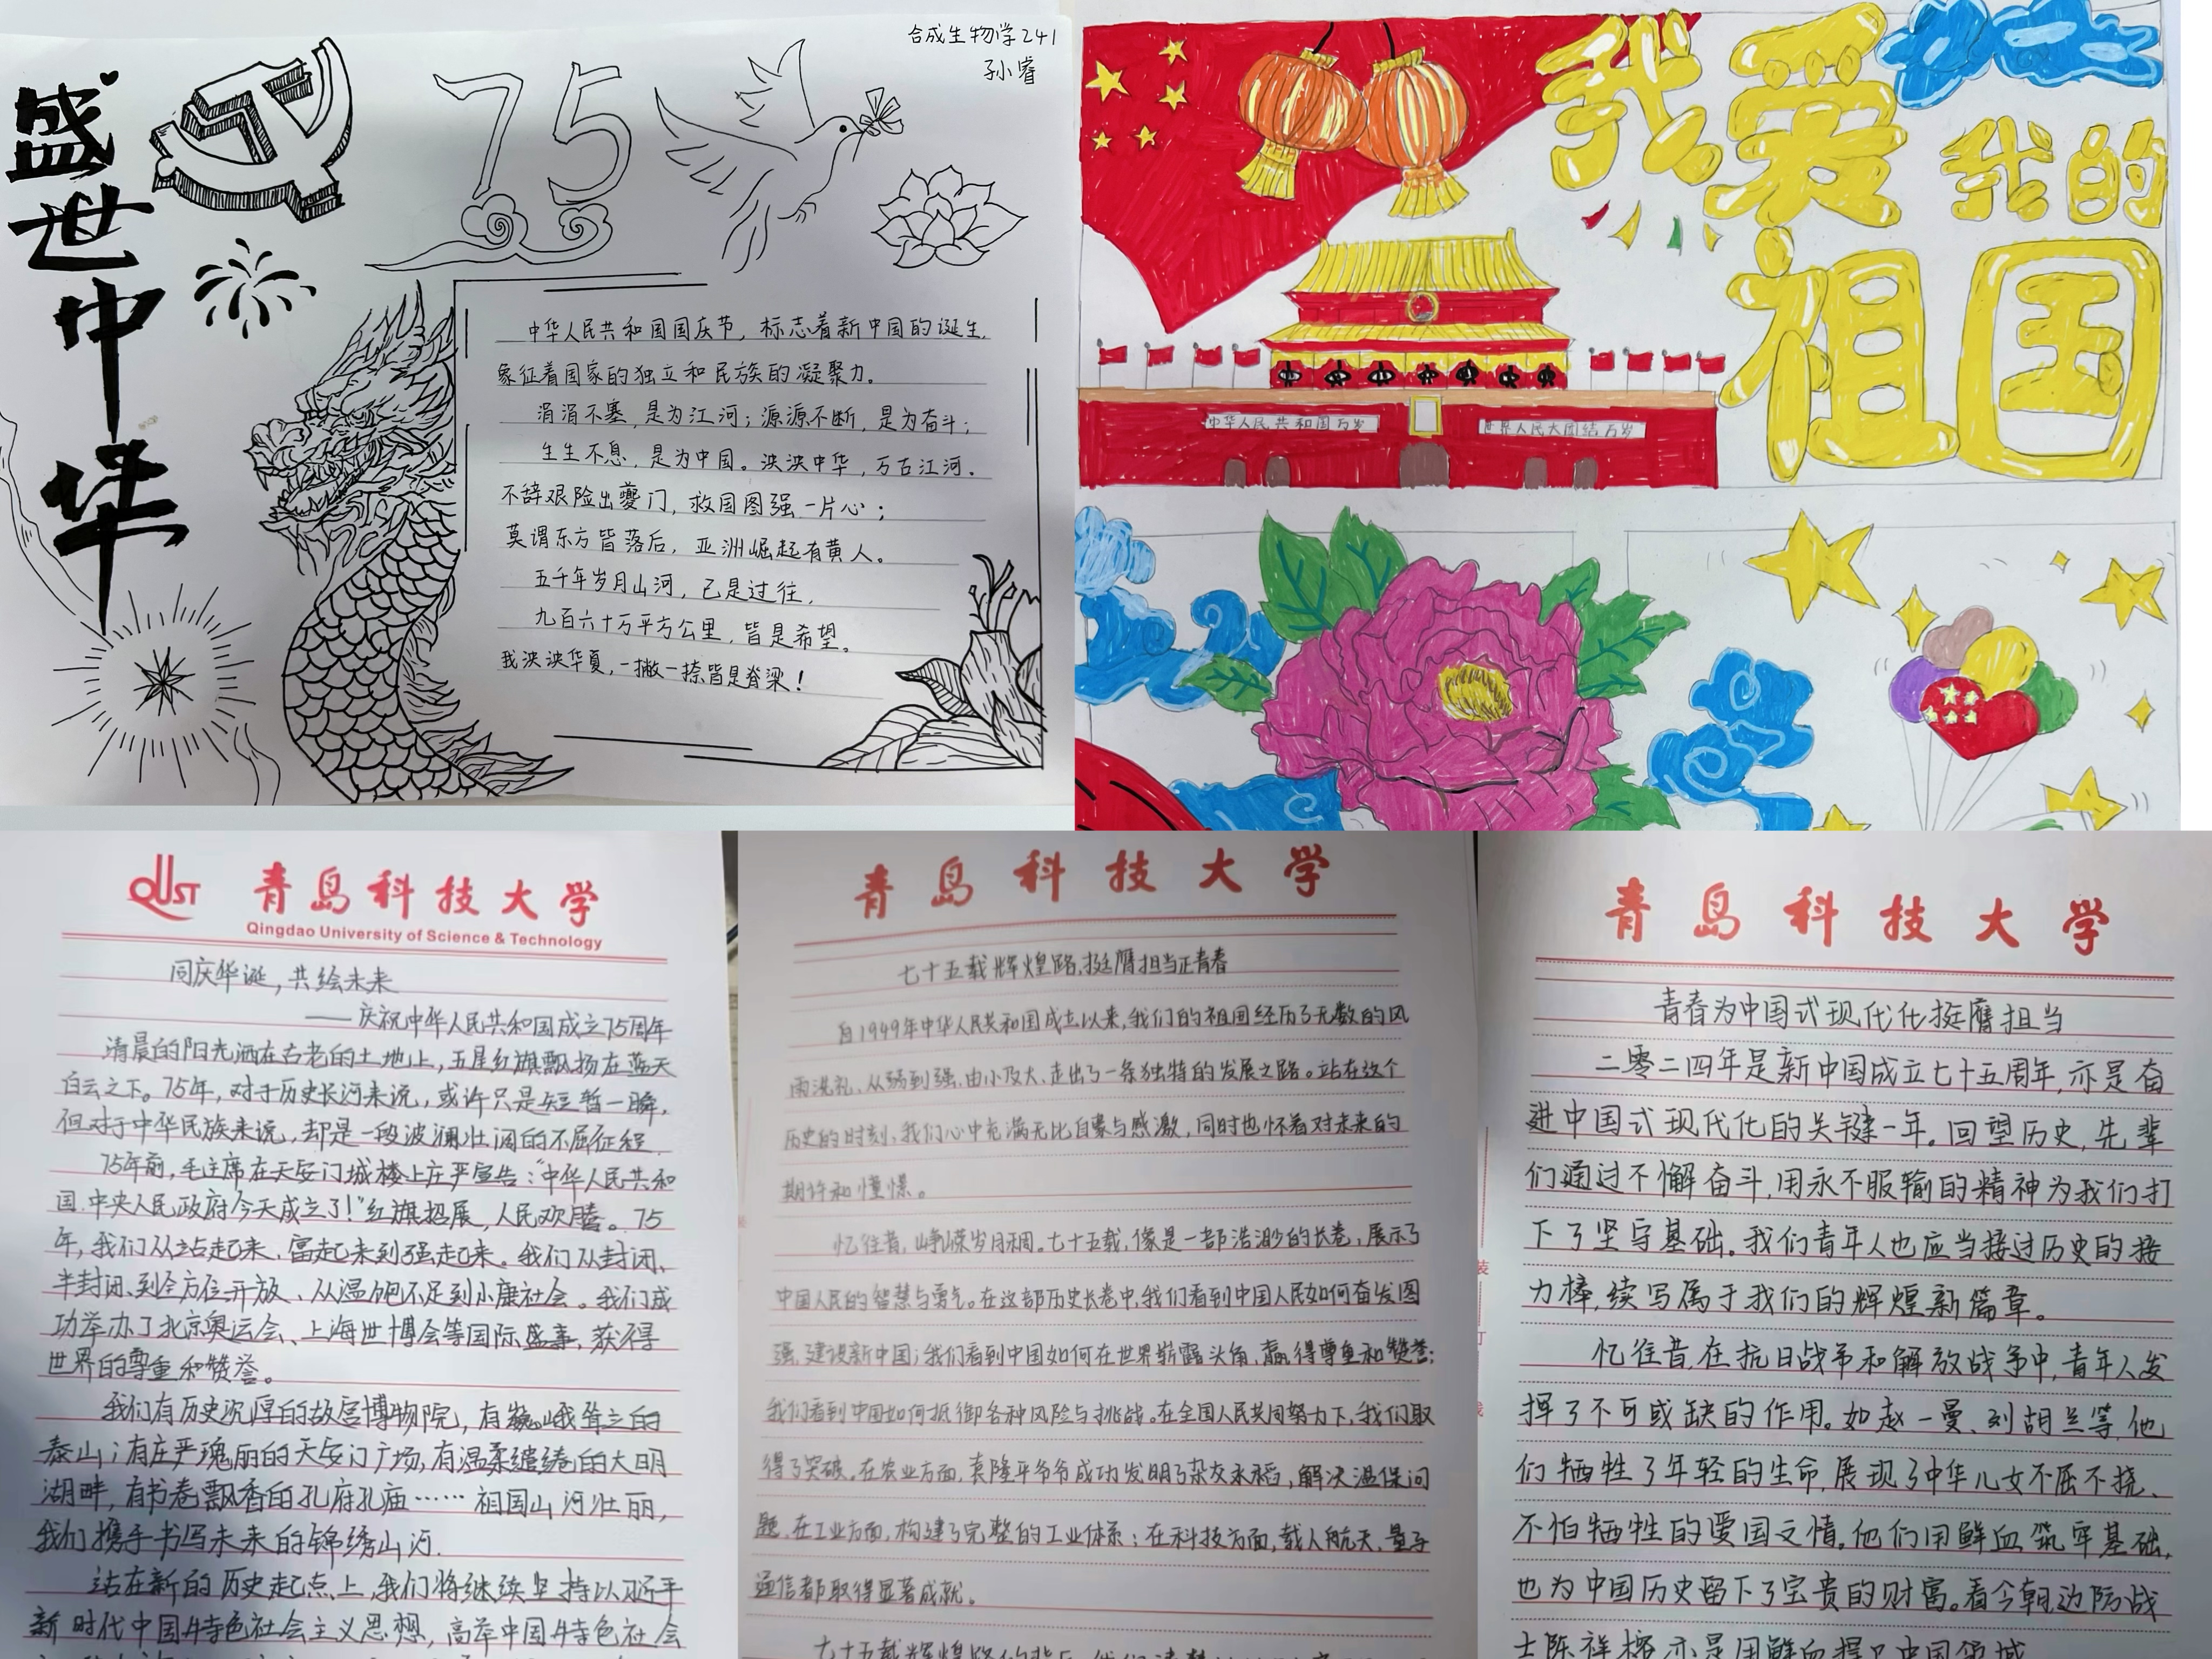 合成生物学241
孙小睿
盛世中华
75
中华人民共和国国庆节，标志着新中国的诞生，
象征着国家的独立和民族的凝聚力。
涓涓不塞，是为江河；源源不断，是为奋斗；
生生不息，是为中国。泱泱中华，万古江河。
不辞艰险出夔门，救国图强一片心；
莫谓东方皆落后，亚洲崛起有黄人。
五千年岁月山河，已是过往，
九百六十万平方公里，皆是希望。
我泱泱华夏，一撇一捺皆是脊梁！
我爱我的
祖国
中华人民共和国万岁
世界人民大团结万岁
QUST 青岛科技大学
Qingdao University of Science & Technology
同庆华诞，共绘未来
——庆祝中华人民共和国成立75周年
清晨的阳光洒在古老的土地上，五星红旗飘扬在蓝天
白云之下。75年，对于历史长河来说，或许只是短暂一瞬，
但对于中华民族来说，却是一段波澜壮阔的不屈征程.
75年前，毛主席在天安门城楼上庄严宣告：“中华人民共和
国.中央人民政府今天成立了！”红旗招展，人民欢腾。75
年，我们从站起来、富起来到强起来。我们从封闭、
半封闭、到全方位开放、从温饱不足到小康社会。我们成
功举办了北京奥运会、上海世博会等国际盛事，获得
世界的尊重和赞誉。
我们有历史沉厚的故宫博物院，有巍峨耸立的
泰山；有庄严瑰丽的天安门广场，有温柔缱绻的大明
湖畔，有书卷飘香的孔府孔庙……祖国山河壮丽，
我们携手书写未来的锦绣山河.
站在新的历史起点上，我们将继续坚持以习近平
新时代中国特色社会主义思想，高举中国特色社会
青岛科技大学
七十五载辉煌路，挺膺担当正青春
自1949年中华人民共和国成立以来，我们的祖国经历了无数的风
雨洗礼、从弱到强、由小及大、走出了一条独特的发展之路。站在这个
历史的时刻、我们心中充满无比自豪与感激，同时也怀着对未来的
期许和憧憬。
忆往昔，峥嵘岁月稠。七十五载，像是一部浩渺的长卷，展示了
中国人民的智慧与勇气。在这部历史长卷中，我们看到中国人民如何奋发图
强、建设新中国；我们看到中国如何在世界崭露头角，赢得尊重和赞誉；
我们看到中国如何抵御各种风险与挑战。在全国人民共同努力下，我们取
得了突破。在农业方面，袁隆平爷爷成功发明了杂交水稻，解决温保问
题.在工业方面，构建了完整的工业体系；在科技方面，载人航天、量子
通信都取得显著成就。
青岛科技大学
青春为中国式现代化挺膺担当
二零二四年是新中国成立七十五周年，亦是奋
进中国式现代化的关键一年。回望历史，先辈
们通过不懈奋斗，用永不服输的精神为我们打
下了坚守基础。我们青年人也应当接过历史的接
力棒，续写属于我们的辉煌新篇章。
忆往昔，在抗日战争和解放战争中，青年人发
挥了不可或缺的作用。如赵一曼、刘胡兰等，他
们牺牲了年轻的生命，展现了中华儿女不屈不挠、
不怕牺牲的爱国之情。他们用鲜血筑牢基础，
也为中国历史留下了宝贵的财富。看今朝，边防战
士陈祥榕亦是用鲜血捍卫中国领域
装
订
线